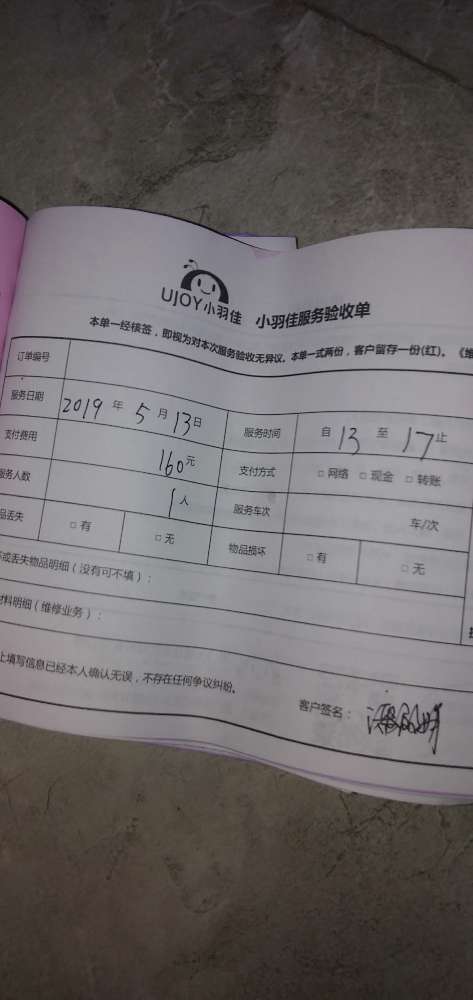 UJOY小羽佳 小羽佳服务验收单
本单一经核签，即视为对本次服务验收无异议。本单一式两份，客户留存一份(红)。《维
订单编号
服务日期 2019 年 5 月 13 日 服务时间 自 13 至 17 止
支付费用 160 元 支付方式 □ 网络 □ 现金 □ 转账
服务人数 1 人 服务车次 车/次
品丢失 □ 有 □ 无 物品损坏 □ 有 □ 无
坏或丢失物品明细（没有可不填）：
材料明细（维修业务）：
上填写信息已经本人确认无误，不存在任何争议纠纷。
客户签名：